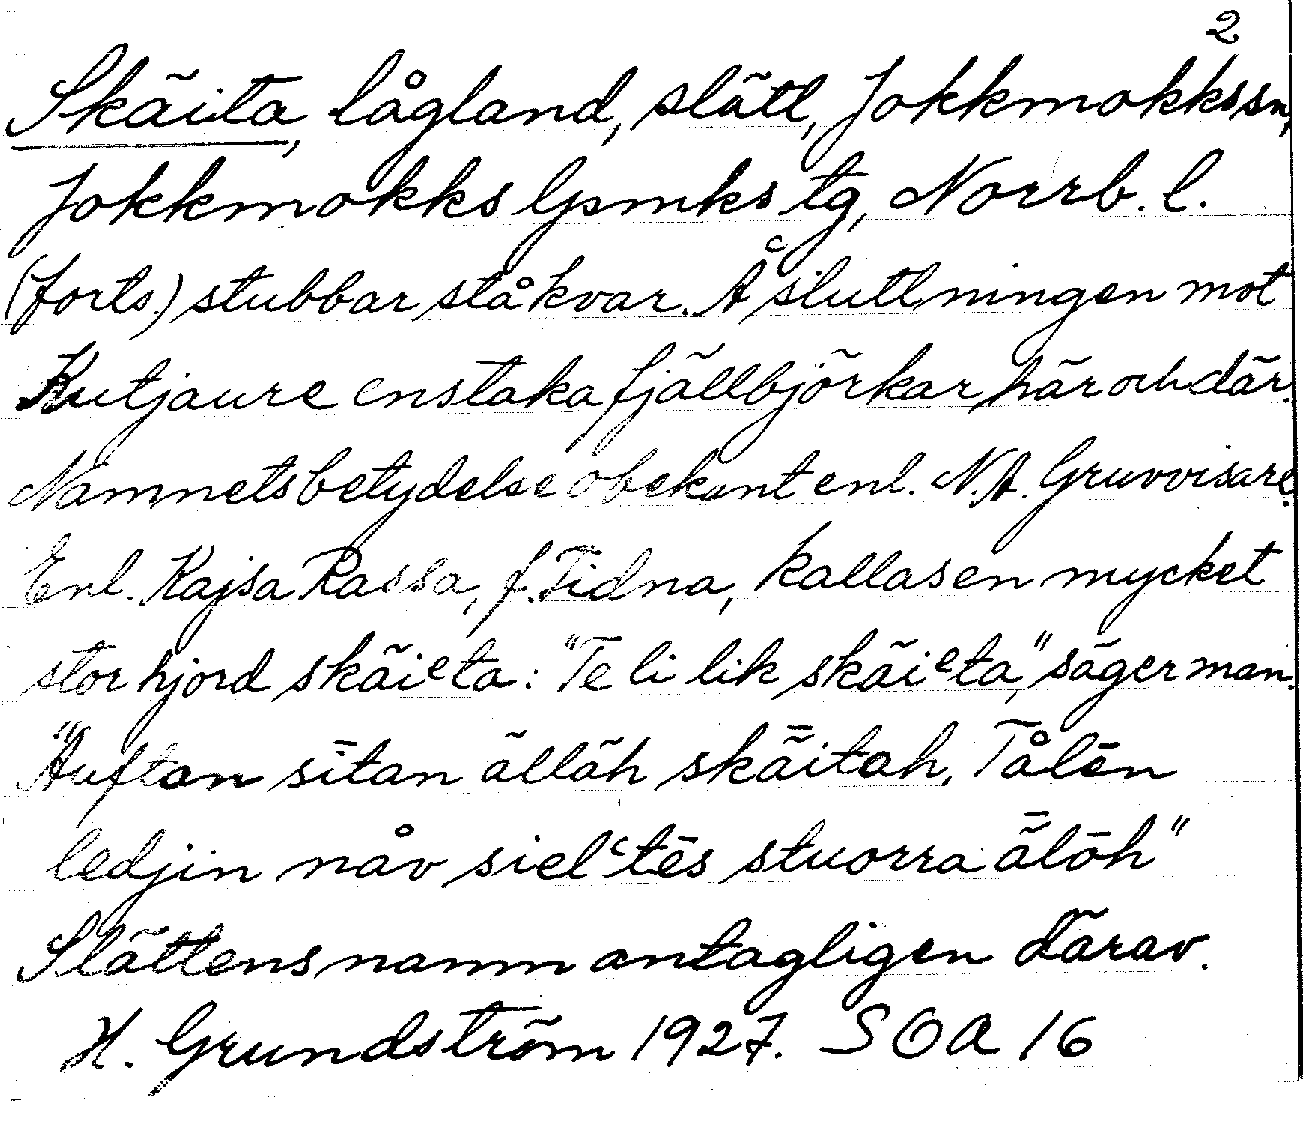 2
Skäita, lågland, slätt, Jokkmokks sn,
Jokkmokks lpmks tg, Norrb. l.
(forts.) stubbar stå kvar. Å sluttningen mot
Kutjaure enstaka fjällbjörkar här och där.
Namnets betydelse obekant enl. N.A. Gruvvisare.
Enl. Kajsa Rassa, f. Tidna, kallas en mycket
stor hjord skäieta: "Te li lik skäieta", säger man.
"Auftan sītan älläh skǟitah, Tålēn
ledjin nåv sielctēs stuorra ǟlōh"
Slättens namn antagligen därav.
H. Grundström 1927. SOA 16